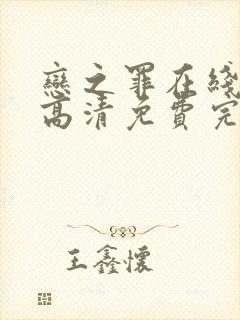 戀之罪在綫
高清免費完
王鑫懷